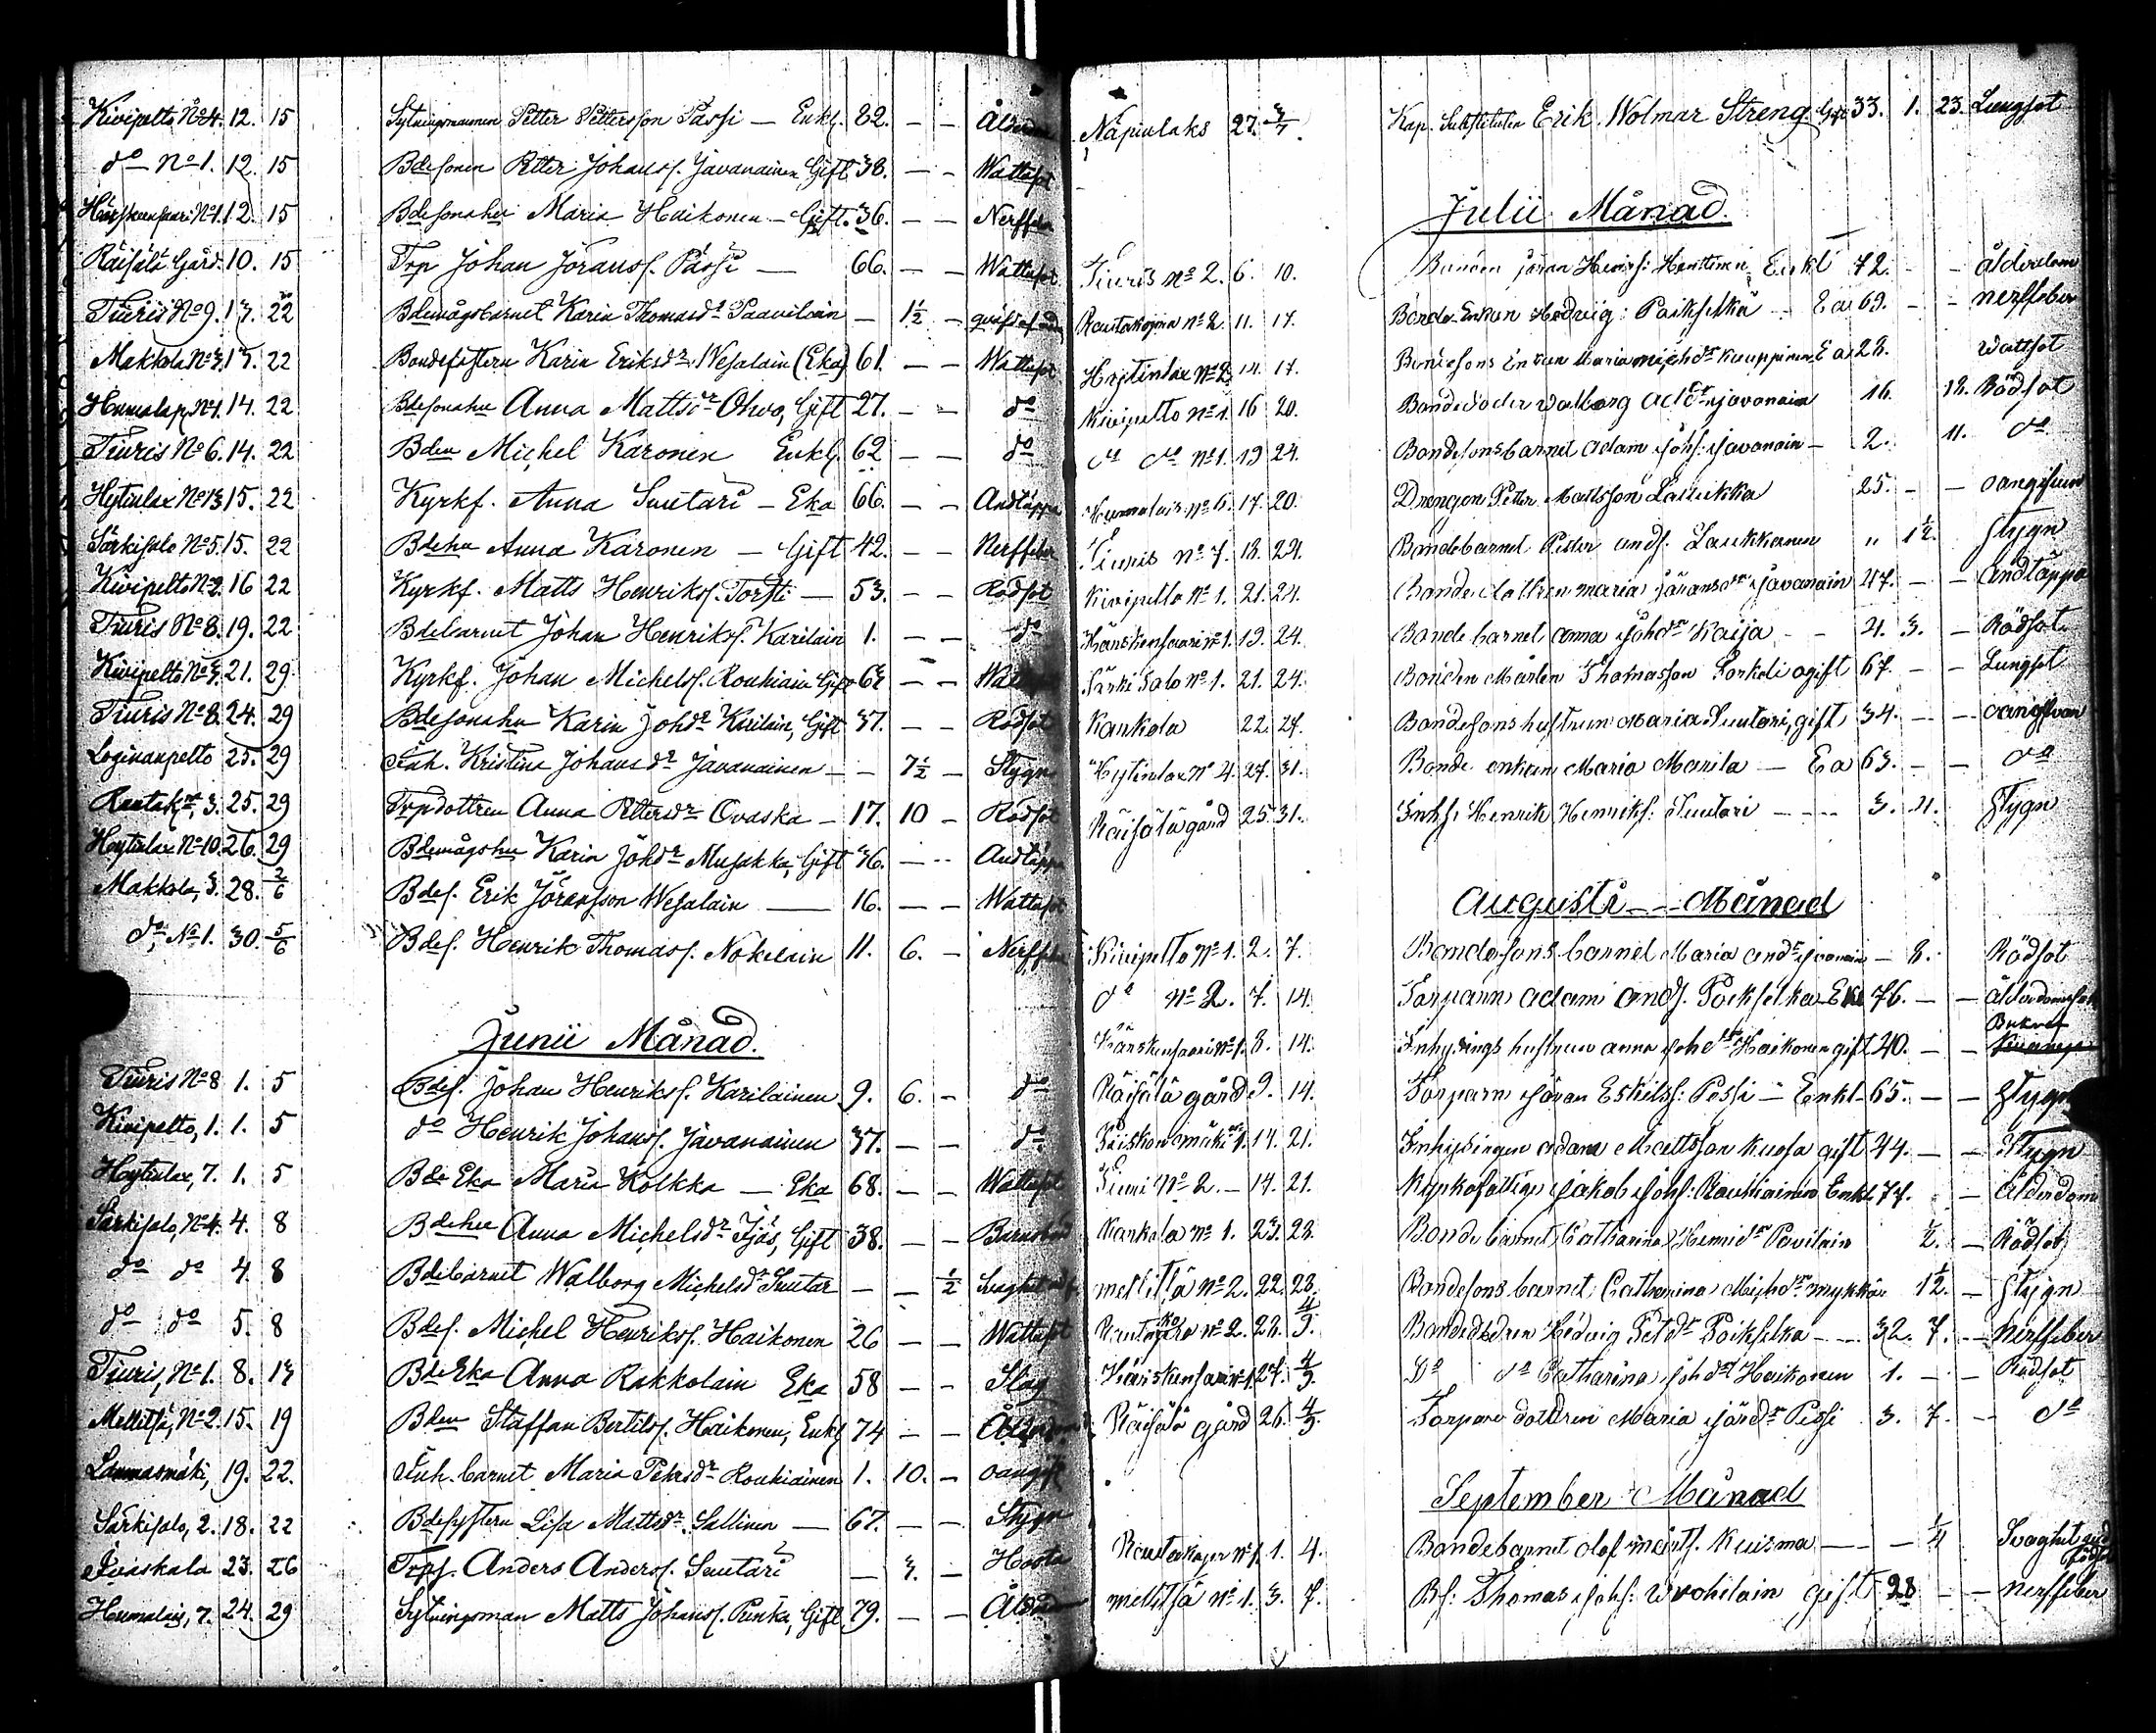 Kivipelto, No 4. 12. 15 Sytningsmannen Petter Pettersson Pässi — Enkl. 82. — — Ålderdom
do No 1. 12. 15 Bdesonen Petter Johanss. Javanainen Gift 38. — — Wattusot
No 1. 12. 15 Bdesonahu Maria Haikonen — Gift. 36. — — Nerffeber
Räisälä Gård. 10. 15 Trp Johan Jöranss. Pässi — 66. — — Wattusot
Tiuris No 9. 13. 22 Bdemågsbarnet Karin Thomasdr Paavilain — 1½ —
Makkola No 3. 17. 22 Karin Eriksdr Wesalain (Eka) 61. — — Wattusot
No 1. 14. 22 Bdesonahu Anna Mattsdr Ohvo, Gift 27. — — do
Tiuris No 6. 14. 22 Bden Michel Karonen Enkl. 62 — — do
Hytinlax No 13. 15. 22 Kyrkf. Anna Suutari — Eka 66. — — Andtäppa
Särkisalo No 5. 15. 22 Bdehu Anna Karonen — Gift 42. — — Nerffeber
Kivipelto No 2. 16 22 Kyrkf. Matts Henrikss. Torsti — 53. — — Rödsot
Tiuris No 8. 19. 22 Bdebarnet Johan Henrikss. Karilain 1. — — do
Kivipelto No 3. 21. 29 Kyrkf. Johan Michelss. Roukiain Gift — —
Tiuris No 8. 24. 29 Bdesonahu Karin Johdr Karilain, Gift 37. — — Rödsot
Loginanpelto 25. 29 Inh. Kristina Johansdr Javanainen — — 7½ — Stygn
3. 25. 29 Trpdottren Anna Pettersdr Ovaska — 17. 10 — Rödsot
Hytinlax No 10. 26. 29 Bdemågshu Karin Johdr Musakka, Gift 36. — — Andtäppa
Makkola, 3. 28. 2/6 Bdes. Erik Jöransson Wesalain — 16. — — Wattusot
do No 1. 30. 5/6 Bdes. Henrik Thomass. Nokelain 11. 6. — Nerffeber
Junii Månad.
Tiuris No 8 1. 5 Bdes. Johan Henrikss. Karilainen 9. 6. — do
Kivipelto, 1. 1. 5 do Henrik Johanss. Javanainen 37. — — do
Hytinlax, 7. 1. 5 Bde Eka Maria Kolkka — Eka 68. — — Wattusot
Särkisalo, No 4. 4. 8 Bdehu Anna Michelsdr Ijäs, Gift 38. — — Barnsbörd
do do 4. 8 Bdebarnet Walborg Michelsdr Suutar — — ½
do do 5. 8 Bdes. Michel Henrikss. Haikonen 26 — — Wattusot
Tiuris, No 1. 8. 13 Bde Eka Anna Rakkolain Eka 58 — — Slag
Mellitsä, No 2. 15. 19 Bden Staffan Bertilss. Haikonen, Enkl. 74 — — Ålderdom
19. 22. Inh. barnet Maria Petersdr Roukiainen 1. 10. —
Särkisalo, 2. 18. 22 Bdesystern Lisa Mattsdr Sallinen — 67. — — Stygn
Ivaskala 23. 26 Trps. Anders Anderss. Suutari — 3. — Hosta
Humalais, 7. 24. 29 Sytningsman Matts Johanss. Punka, Gift 79. — — Ålderdom
Näpinlaks 27. 3/7. Kap. Substituten Erik Wolmar Streng Gift 33. 1. 23. Lungsot
Julii Månad.
Tiuris No 2. 6. 10. Bonden Jöran Henrss: Henttinen Enkl 72. — — ålderdom
Rautakorpia No 2. 11. 17. Bonde Enkan Hedvig: Poikselkä — Ea 69. — — nerffeber
Hytinlax No 2. 14. 17. Bondesons Enkan Maria Michdr Kauppinen Ea 28. wattsot
Kivipelto No 1. 16 20. Bondedoder Walborg Addr Javanain 16. 18. Rödsot
do do No 1. 19 24. Bondesonsbarnet Adam Johs: Javanain — 2. 11. do
Humalais No 6. 17. 20. Drengen Petter Mattsson Laukka 25. — —
Tiuris No 7. 18. 24. Bondebarnet Peter Ands. Laukkanen " 1½. Stygn
Kivipelto No 1. 21. 24. Bondedottren Maria Jöransdr Javanain 47. — — Andtäppa
Hänskensaari No 1. 19. 24. Bonde barnet Anna Johdr Kaija — — 4. 3. — Rödsot
Särki Salo No 1. 21. 24. Bonden Mårten Thomasson Torkeli ogift 67. — — Lungsot
Kankola 22. 24. Bondesons hustrun Maria Suutari, gift 34. — —
Hytinlax No 4. 27. 31. Bonde enkan Maria Marila — Ea 63. — — do
Räisälä gård 25. 31. Inhs. Henrik Henrikss: Suutari — 3. 11. Stygn
Augusti Månad
Kivipelto No 1. 2. 7. Bondesons barnet Maria Anddr — 8. Rödsot
do No 2. 7. 14. Torparn Adam Ands. Poikselka Enkl 76. — — Ålderdomssot
Hänskensaari No 1. 8. 14. Inhysings hustrun Anna Johdr Haikonen gift 40. — — Bukref
Räisälä gård 9. 14. Torparn Jöran Eskilss: Pessi — Enkl. 65. — — Stygn
No 1. 14. 21. Inhysingen Adam Mattsson Kuosa gift 44. — — Stygn
Tiuri No 2. — 14. 21. Kyrkofattige Jakob Johs: Raukiainen Enkl. 77. — Ålderdom
Kankola No 1. 23. 28. Bonde barnet Catharina Henrdr Pavilain ½. — Rödsot
Mellitsä No 2. 22. 28. Bondesons barnet Catharina Michdr Mykkän 1½. — Stygn
No 2. 28. 4/9. Bondedotren Hedvig Petdr Poikselka — 32. 7. — Nerffeber
Hänskensaari No 1. 27. 4/9. Do do Catharina Johdr Haikonen 1. — — Rödsot
Räisälä gård 26. 4/9. Torpare dottren Maria Jöransdr Pessi 3. 7. — do
September Månad
No 1. 1. 4. Bondebarnet Olof Mårts. Kuisma — — ¼ Svaghet
Mellitsä No 1. 3. 7. Bs: Thomas Johs: Wuohelain gift 28 — — nerffeber